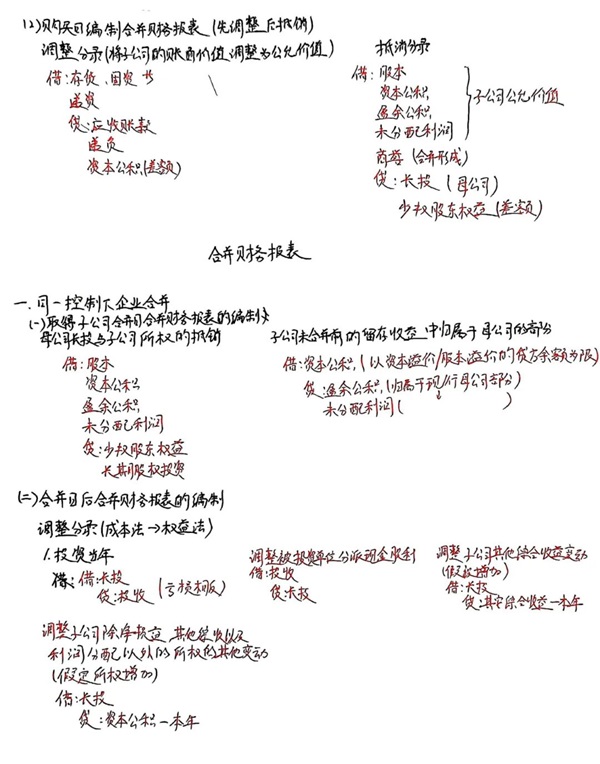 (2)购买日编制合并财务报表(先调整后抵销)
调整分录(将子公司的账面价值调整为公允价值)
借:存货、固资 等
递资
贷:应收账款
递负
资本公积(差额)
抵消分录
借:股本
资本公积
盈余公积
未分配利润
子公司公允价值
商誉(合并形成)
贷:长投(母公司)
少数股东权益(差额)
合并财务报表
一.同一控制下企业合并
(一)取得子公司合并日合并财务报表的编制
母公司长投与子公司所权的抵销
借:股本
资本公积
盈余公积
未分配利润
贷:少数股东权益
长期股权投资
子公司未合并前的留存收益中归属于母公司的部分
借:资本公积(以资本溢价/股本溢价的贷方余额为限)
贷:盈余公积(归属于现行母公司部分)
未分配利润( )
(二)合并日后合并财务报表的编制
调整分录(成本法→权益法)
1.投资当年
借:借:长投
贷:投收(亏损相反)
调整被投资单位分派现金股利
借:投收
贷:长投
调整子公司其他综合收益变动
(假设增加)
借:长投
贷:其它综合收益—本年
调整子公司除净损益、其他综收以及
利润分配以外的所权的其他变动
(假定所权增加)
借:长投
贷:资本公积—本年